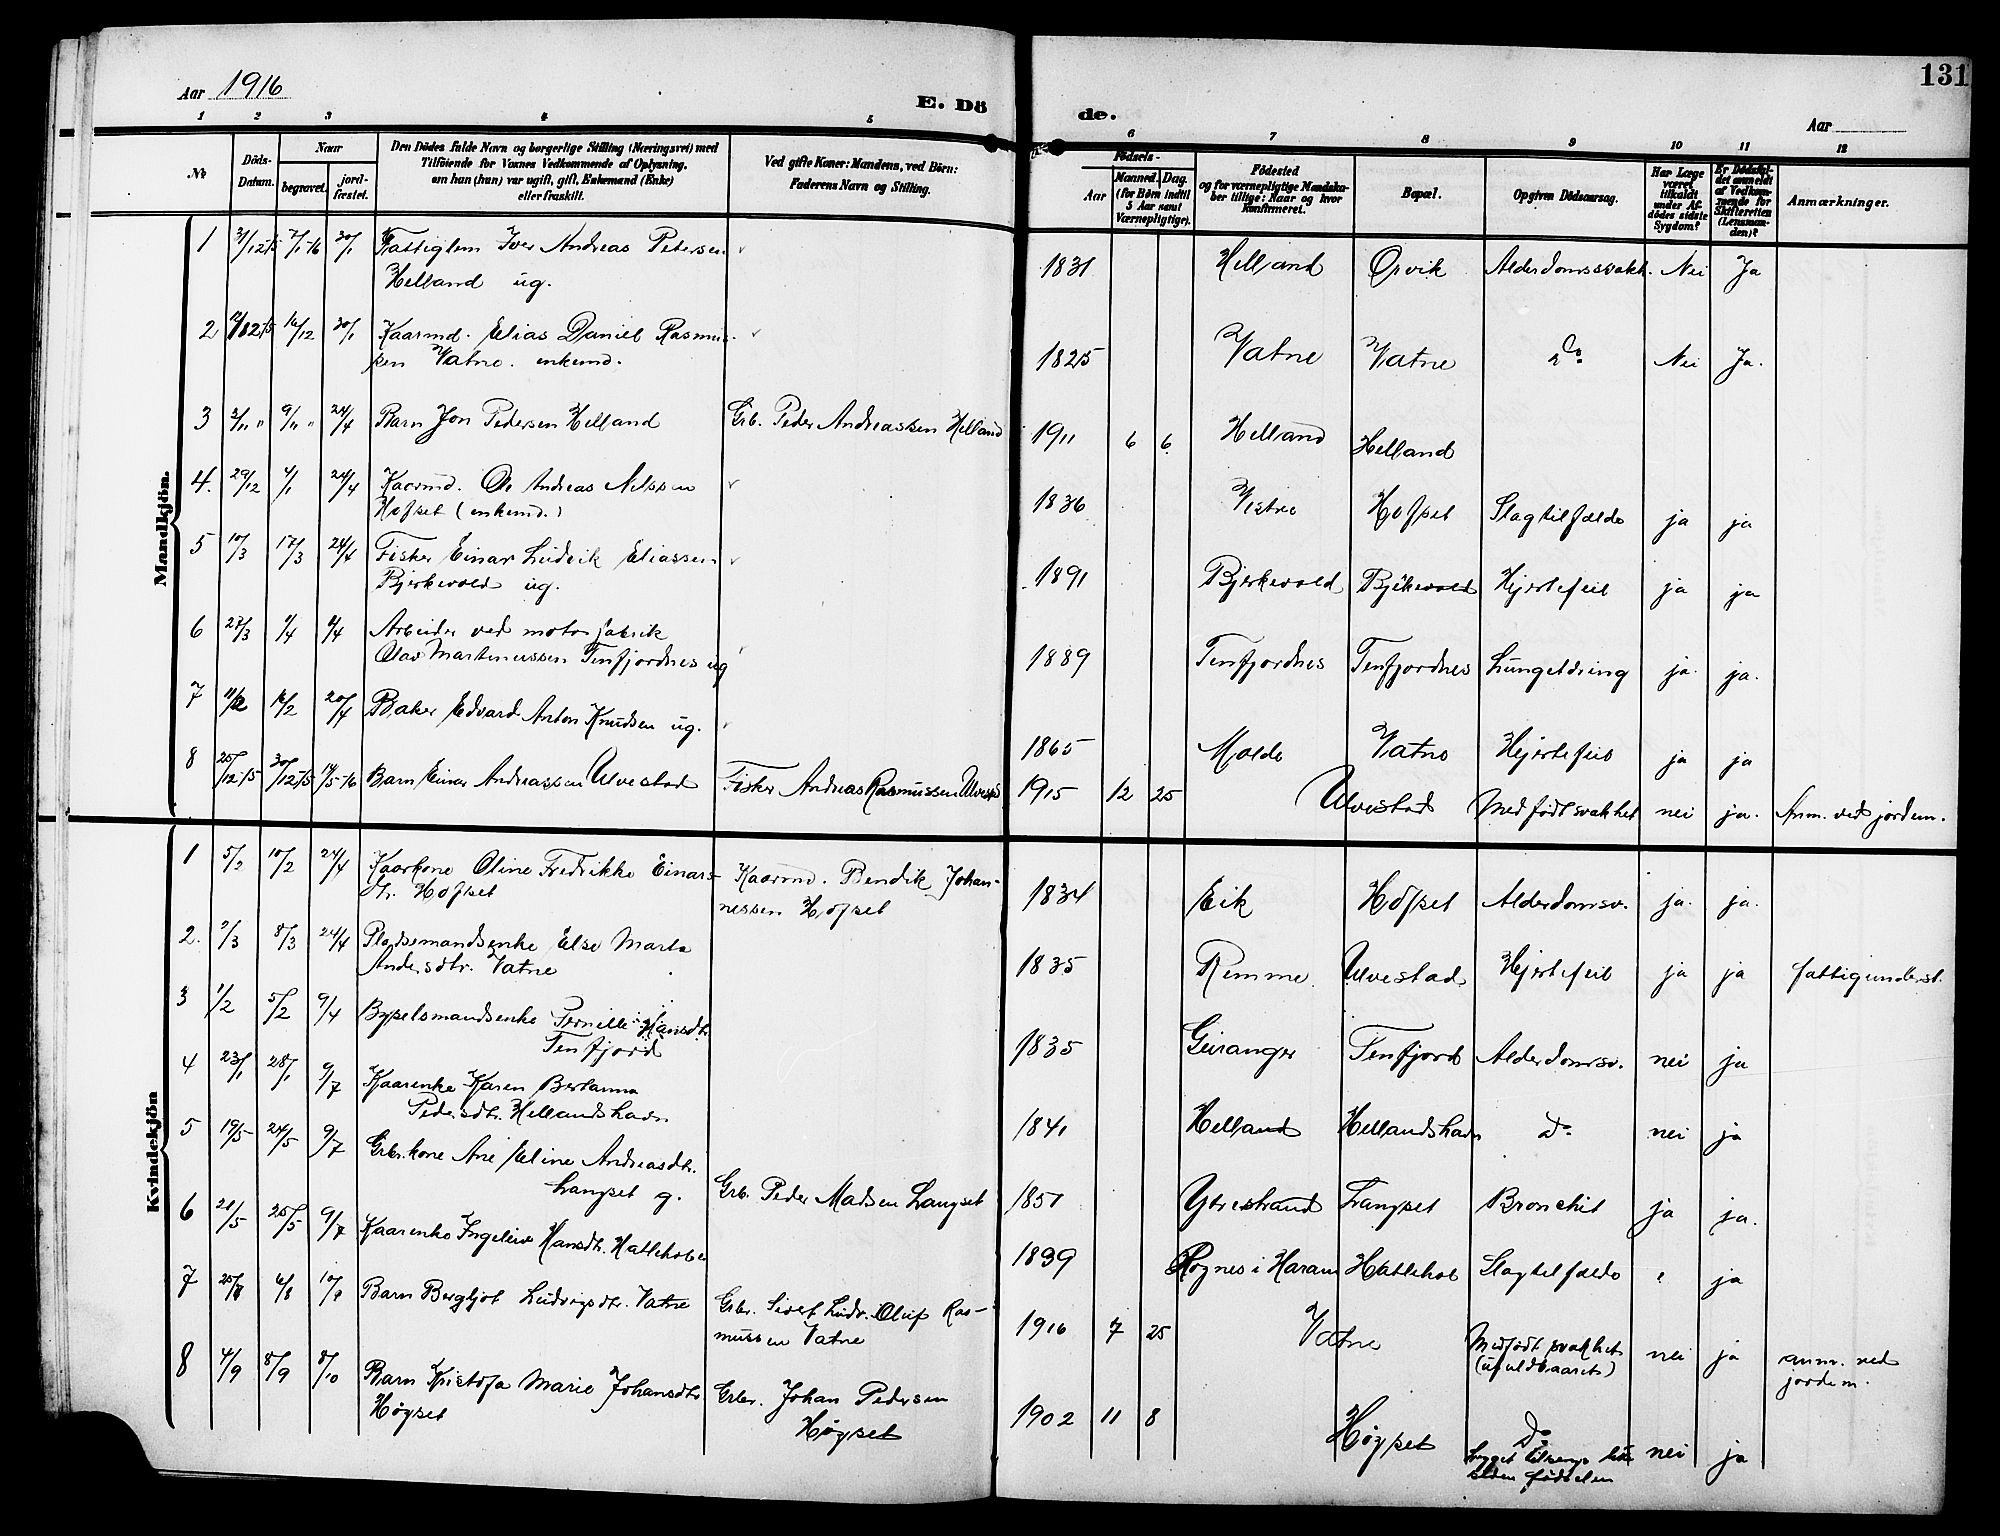 Aar 1916
E. Dö
de.
131
Aar
1 2 3 4 5 6 7 8 9 10 11 12
No
Döds-
Datum.
Naar
begravet.
jord-
fæstet.
Den Dödes fulde Navn og borgerlige Stilling (Næringsvei) med
Tilföiende for Voxnes Vedkommende af Oplysning.
om han (hun) var ugift, gift, Enkemand (Enke)
eller fraskilt.
Ved gifte Koner: Mandens, ved Börn:
Faderens Navn og Stilling.
Födsels-
Aar
Maaned. Dag.
(for Börn indtil
5 Aar samt
Værnepligtige).
Födested
og for værnepligtige Mandska-
ber tillige: Naar og hvor
konfirmeret.
Bopæl.
Opgiven Dödsaarsag.
Har Læge
været
tilkaldt
under Af-
dödes sidste
Sygdom?
Er Dödsfal-
det anmeldt
af Vedkom-
mende for
Skifteretten
(Lensman-
den)?
Anmærkninger.
Mandkjön.
1 7/1-16 30/1 Fattiglem Iver Andreas Petersen
Helland ug.
1831 Helland Orvik Alderdomssvakh. Nei Ja
2 16/12 30/1 Kaarmd. Elias Daniel Rasmus-
sen Vatne. enkemd.
1825 Vatne Vatne Do Nei Ja.
3 2/11 " 9/11 " 24/4 Barn Jon Pedersen Helland
Grb. Peder Andreassen Helland
1911 6 6 Helland Helland
4. 29/12 4/1 24/4 Kaarmd. Ole Andreas Nilssen
Hofset (enkemd.)
1836 Vatne Hofset Slagtilfælde ja ja
5 10/3 17/3 24/4 Fisker Einar Ludvik Eliassen
Bjerkevold ug.
1891 Bjerkevold Bjerkevold Hjertefeil ja ja
6 27/3 4/4 4/4 Arbeider ved motorfabrik
Olav Martinussen Tenfjordnes ug
1889 Tenfjordnes Tenfjordnes Lungetæring ja. ja.
7 11/2 16/2 20/4 Baker Edvard Anton Knudsen ug.
1865 Molde Vatne Hjertefeil ja ja
8 25/12-15 30/12-15 14/5-16 Barn Einar Andreassen Ulvestad
Fisker Andreas Rasmussen Ulvestad
1915 12 25 Ulvestad Medfødt svakhet nei ja. Anm. ved jordem.
Kvindekjön
1 5/2 10/2 24/4 Kaarkone Oline Fredrikke Einars-
dtr. Hofset
Kaarmd. Bendik Johan-
nessen Hofset
1834 Eik Hofset Alderdomsv. ja. ja.
2. 2/3 8/3 24/4 Pladsemandsenke Else Marta
Andersdtr. Vatne
1835 Remme Ulvestad Hjertefeil ja ja fattigunderst.
3 1/2 5/2 9/4 Bygselsmandsenke Pernille Hansdtr.
Tenfjord
1835 Geiranger Tenfjord Alderdomsv. nei ja
4 23/1 28/1 9/7 Kaarenke Karen Bertanna
Pedersdtr. Hellandshavn
1841 Helland Hellandshavn Do nei ja
5 19/5 24/5 9/7 Grbr.kone Ane Eline Andreasdtr.
Langset g.
Grb. Peder Madsen Langset
1851 Ytrestrand Langset Bronchit ja ja.
6 20/5 25/5 9/7 Kaarenke Ingeleiv Hansdtr. Hatlehol
1839 Rognes i Haram Hatlehol Slagtilfælde ja
7 25/7 6/8 10/9 Barn Bergljot Ludvigsdtr. Vatne
Grbr. Sivert Ludv. Oluf Ras-
mussen Vatne
1916 7 25 Vatne Medfødt svakhet
(ufuldbaaret) nei ja anm. ved
jordem.
8 4/9 8/9 8/10 Barn Kristofa Marie Johansdtr
Høgset
Grbr. Johan Pedersen
Høgset
1902 11 8 Høgset Do
siden fødselen nei ja